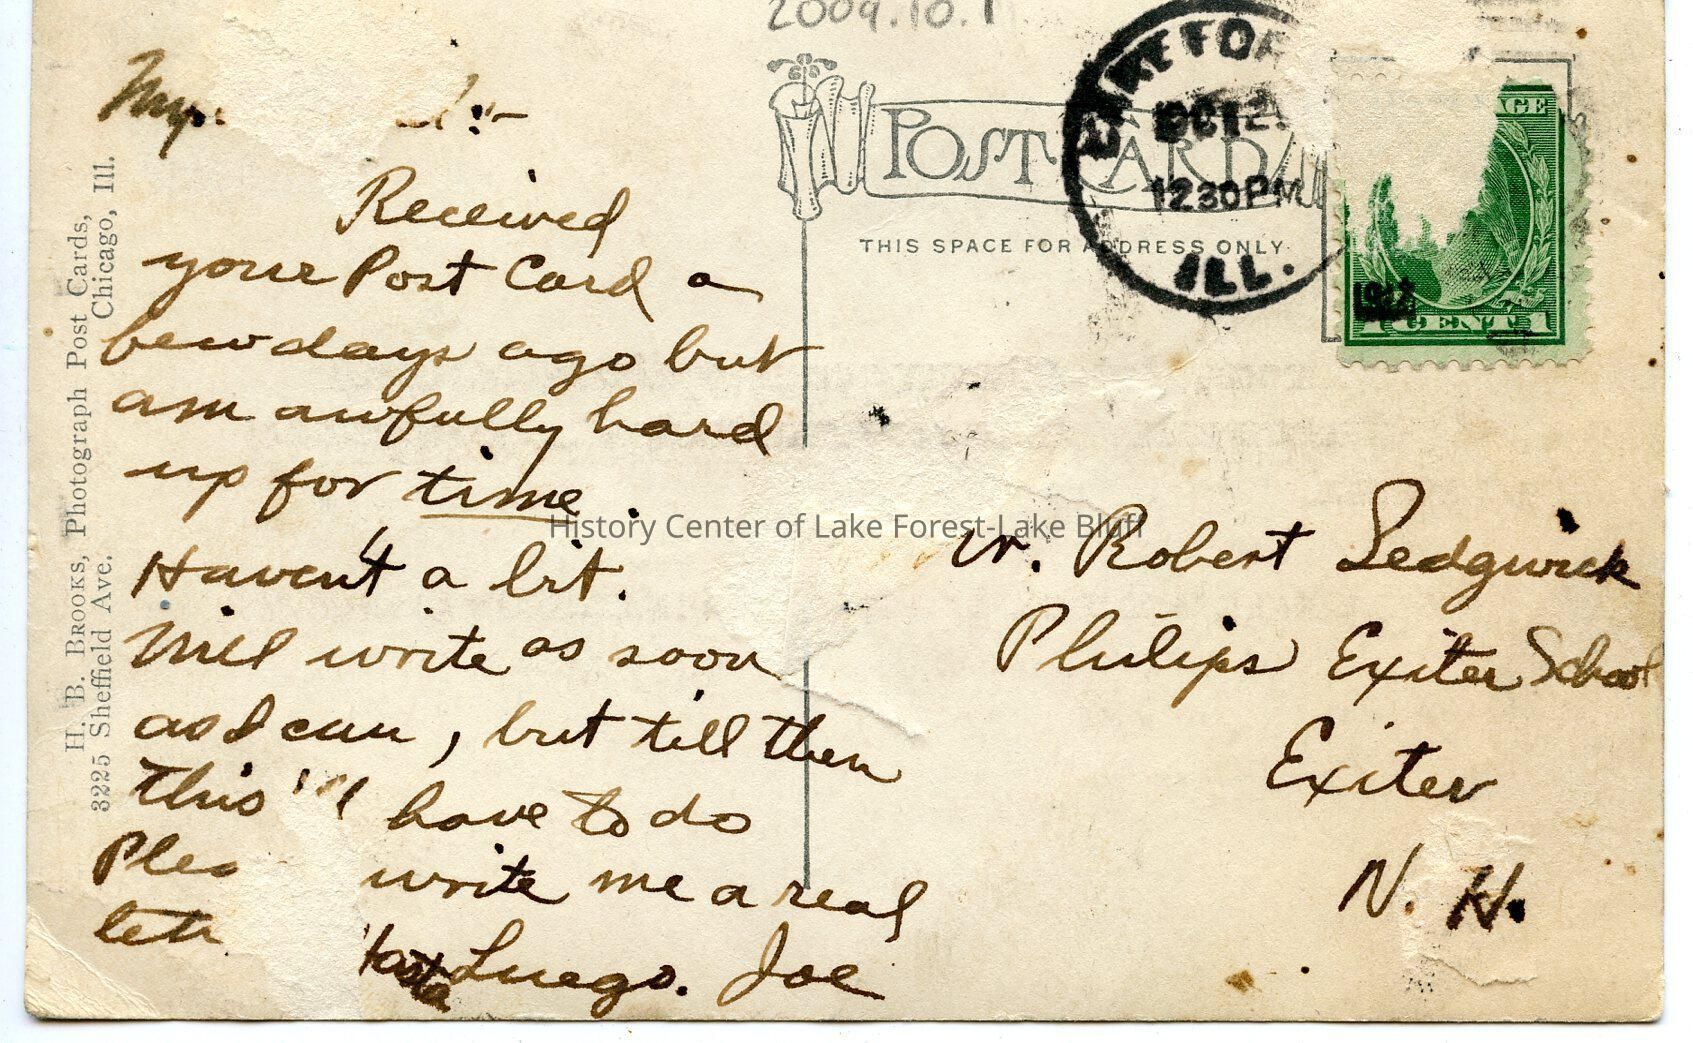 2009.10.1
LAKE FOR
OCT 2
12 30 PM
ILL.
1912
GE
1 CENT 1
POST CARD
THIS SPACE FOR ADDRESS ONLY
H. B. BROOKS, Photograph Post Cards,
3225 Sheffield Ave. Chicago, Ill.
My
Received
your Post Card a
few days ago but
am awfully hard
up for time.
Haven't a bit.
Will write as soon
as I can, but till then
this 'll have to do
Plea write me a real
lett Hasta Luego. Joe
History Center of Lake Forest-Lake Bluff
r. Robert Sedgwick
Philips Exiter School
Exiter
N. H.